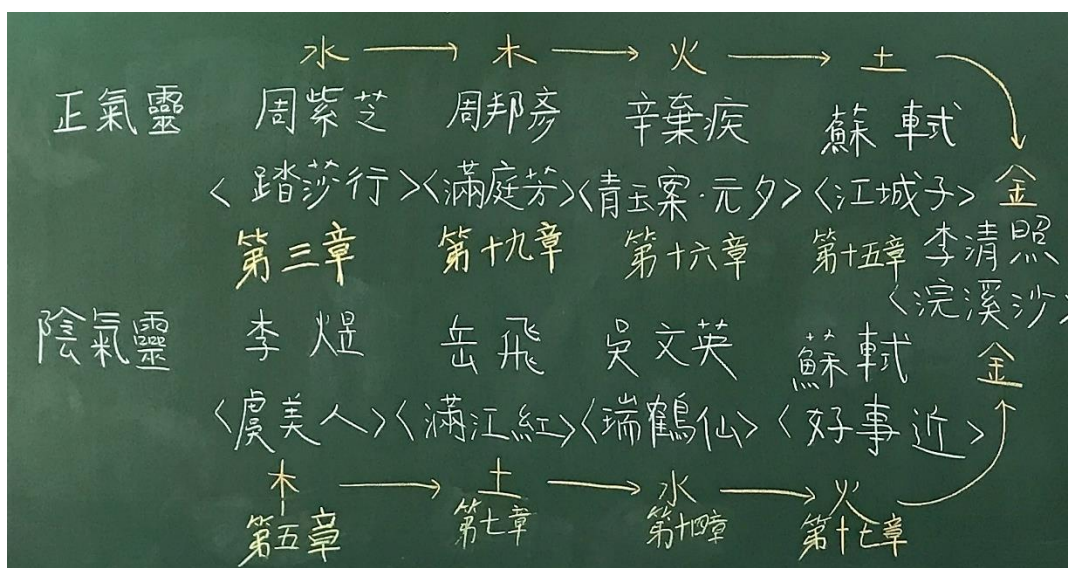 水 → 木 → 火 → 土
正氣靈 周紫芝 周邦彥 辛棄疾 蘇軾
<踏莎行> <滿庭芳> <青玉案·元夕> <江城子> 金
第三章 第十九章 第十六章 第十五章 李清照
<浣溪沙>
陰氣靈 李煜 岳飛 吳文英 蘇軾 金
<虞美人> <滿江紅> <瑞鶴仙> <好事近>
木 → 土 → 水 → 火
第五章 第七章 第十四章 第十七章